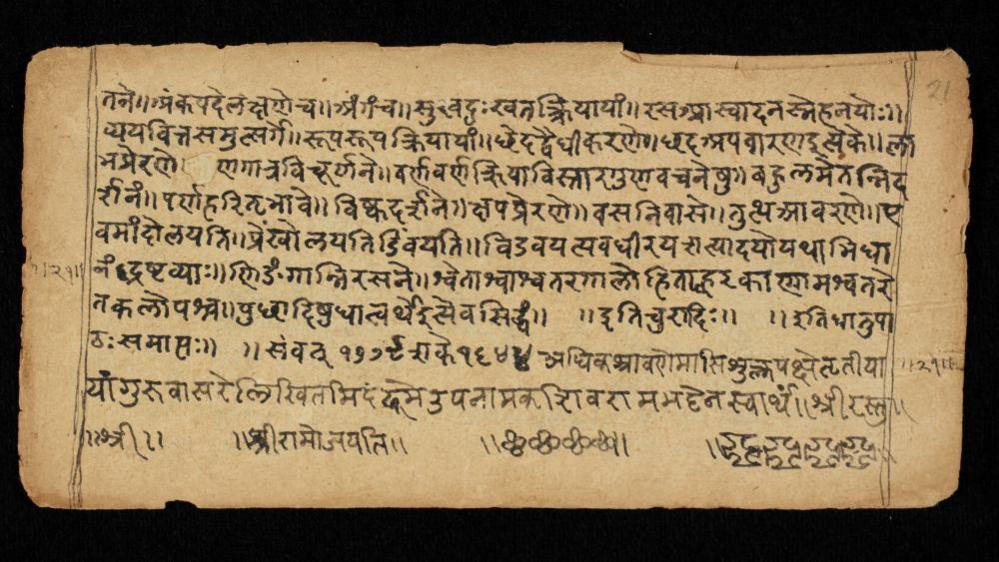 तने॥अंकपदेलक्षणेच॥अंगंच॥सुखदुःखतत्क्रियायां॥रसआस्वादनस्नेहनयोः॥
व्ययवित्तसमुत्सर्गे॥रूपरूपक्रियायां॥छेदद्वैधीकरणे॥छदअपवारणइत्येके॥ला
भप्रेरणे॥ व्रणगात्रविचूर्णने॥वर्णवर्णक्रियाविस्तारगुणवचनेषु॥बहुलमेतन्निद
र्शनं॥पर्णहरितभावे॥विष्कदर्शने॥क्षपप्रेरणे॥वसनिवासे॥तुत्थआवरणे॥ए
वमांदोलयति॥प्रेंखोलयतिविडंबयति॥ अवधीरय
नंद्रष्टव्याः॥णिङंगान्निरसने॥श्वेताश्वाश्वतरगालोहिताह्वरकाणामश्वतरे
तकलोपश्च॥पुछादिषुधात्वर्थेइत्येवसिद्धं॥ ॥इतिचुरादिः॥ ॥इतिधातुपा
ठःसमाप्तः॥ ॥संवत् १७७९शके१६४४अधिकश्रावणेमासिशुक्लपक्षेतृतीया
यांगुरुवासरेलिखितमिदं उपनामक भटेनस्वार्थं॥श्रीरस्तु॥
॥श्री॥ ॥श्रीरामोजयति॥ ॥छ॥छ॥छ॥छ॥
॥२१॥
॥२१॥
21